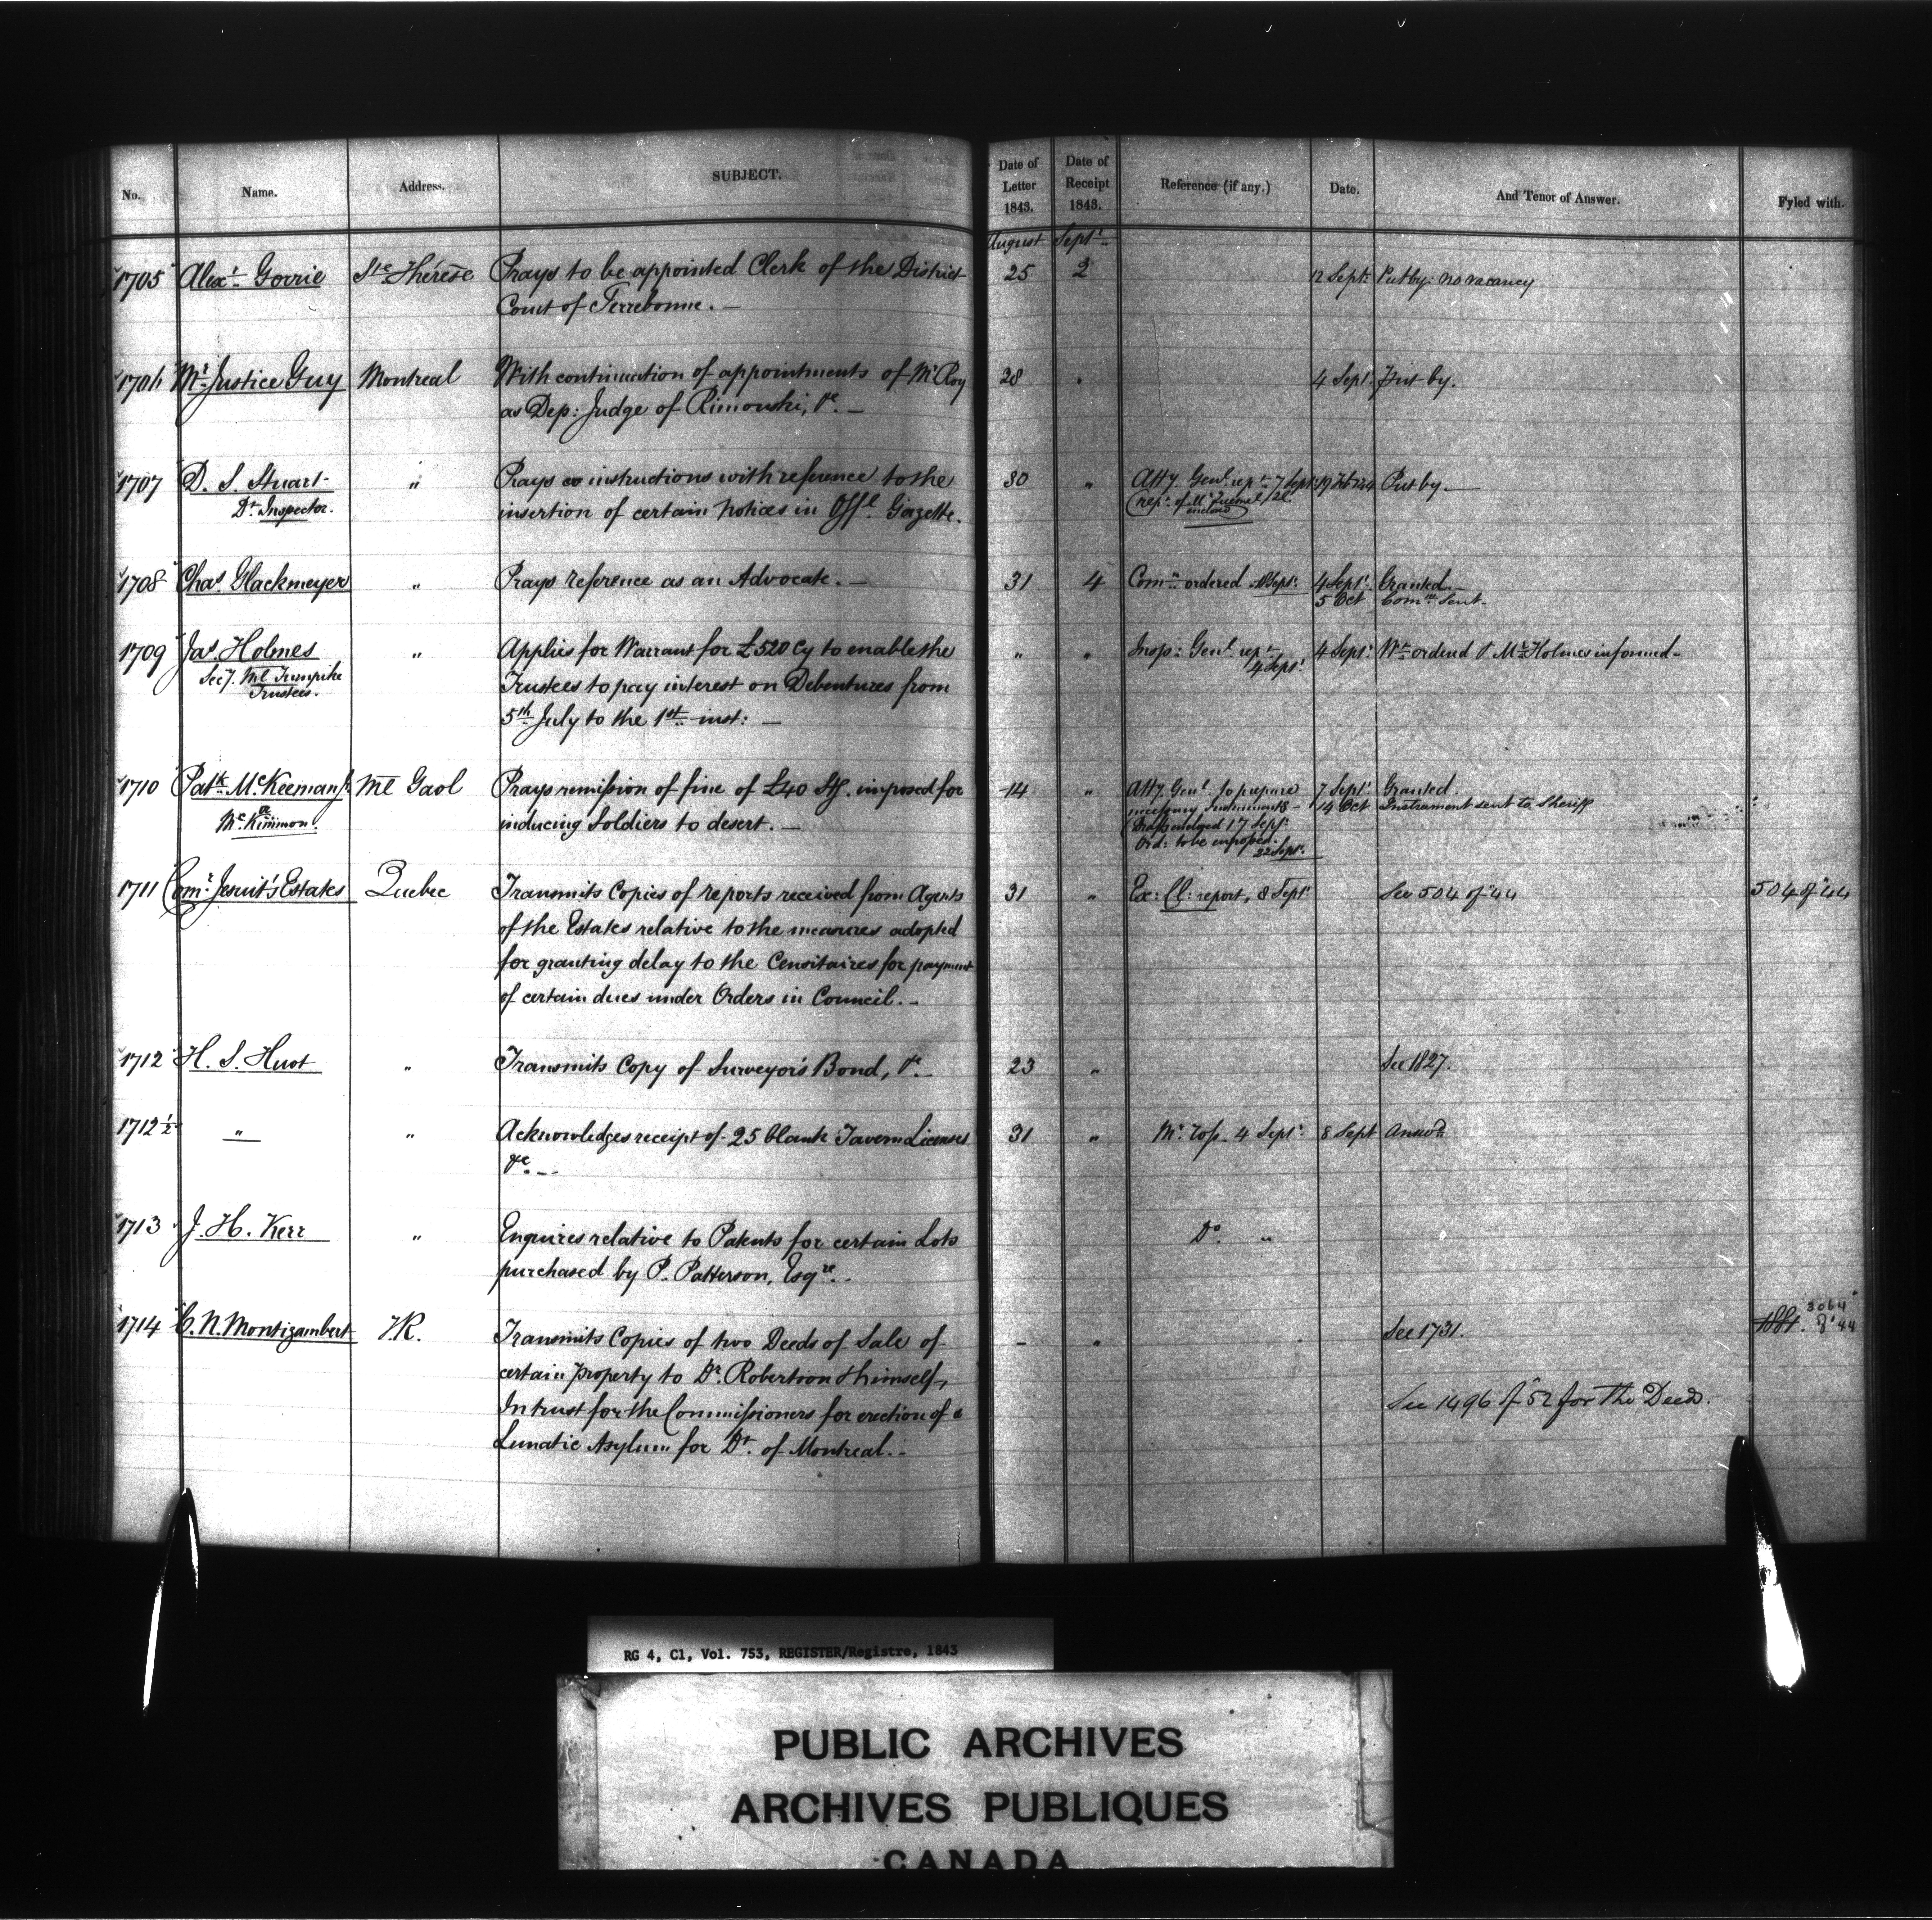 No. Name. Address. SUBJECT. Date of Letter 1843. Date of Receipt 1843. Reference (if any.) Date. And Tenor of Answer. Fyled with.
August Sept.r
1705 Alex.r Gorrie Ste Thérèse Prays to be appointed Clerk of the District 25 2 12 Sept.r Put by: no vacancy
Court of Terrebonne. —
1706 Mr. Justice Guy Montreal With continuation of appointments of Mr Roy 28 " 4 Sept.r Put by.
as Dep: Judge of Rimouski, &c. —
1707 D. S. Stuart " Prays instructions with reference to the 30 " Atty. Genl. rep.t 7 Sept.r Put by. —
Dt. Inspector. insertion of certain Notices in Offl. Gazette. (rep.t of Mr
1708 Chas. Glackmeyer " Prays reference as an Advocate. — 31 4 Comn. ordered Sept.r 4 Sept.r Granted. —
5 Oct Comn. sent.
1709 Jas. Holmes " Applies for Warrant for £520 Cy to enable the " " Insp: Genl. rep.t 4 Sept.r Wt. ordered & Mr. Holmes informed.
Secy. Ml Turnpike Trustees to pay interest on Debentures from 4 Sept.r
Trustees. 5th July to the 1st inst: —
1710 Patk. McKeeman Ml Gaol Prays remission of fine of £40 Stg. imposed for 14 " Atty. Genl. to prepare 7 Sept.r Granted.
McKimmon. inducing Soldiers to desert. — necessary Instruments 14 Oct Instrument sent to Sheriff
17 Sept.r
Ord: to be engrossed.
22 Sept.r
1711 Comr. Jesuit's Estates Quebec Transmits Copies of reports received from Agents 31 " Ex: Cl: report, 8 Sept.r See 504 of 44 504 of 44
of the Estates relative to the measures adopted
for granting delay to the Censitaires for payment
of certain dues under Orders in Council. —
1712 H. S. Huot " Transmits Copy of Surveyor's Bond, &c. — 23 " See 1827.
1712½ " " Acknowledges receipt of 25 blank Tavern Licenses 31 " 4 Sept.r 8 Sept Answd.
&c. —
1713 J. H. Kerr " Enquires relative to Patents for certain Lots Do. "
purchased by P. Patterson, Esqre. —
3064
1714 C. N. Montizambert T.R. Transmits Copies of two Deeds of Sale of – " See 1731. of 44
certain property to Dr. Robertson & himself,
In trust for the Commissioners for erection of a See 1496 of 52 for the Deed.
Lunatic Asylum for Dt. of Montreal. —
RG 4, C1, Vol. 753, REGISTER/Registre, 1843
PUBLIC ARCHIVES
ARCHIVES PUBLIQUES
CANADA